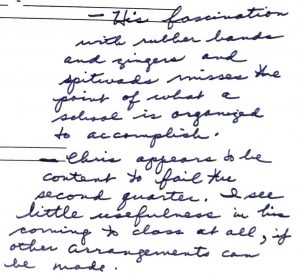 - His fascination
with rubber bands
and zingers and
spitwads misses the
point of what a
school is organized
to accomplish.
- Chris appears to be
content to fail the
second quarter. I see
little usefulness in his
coming to class at all, if
other arrangements can
be made.